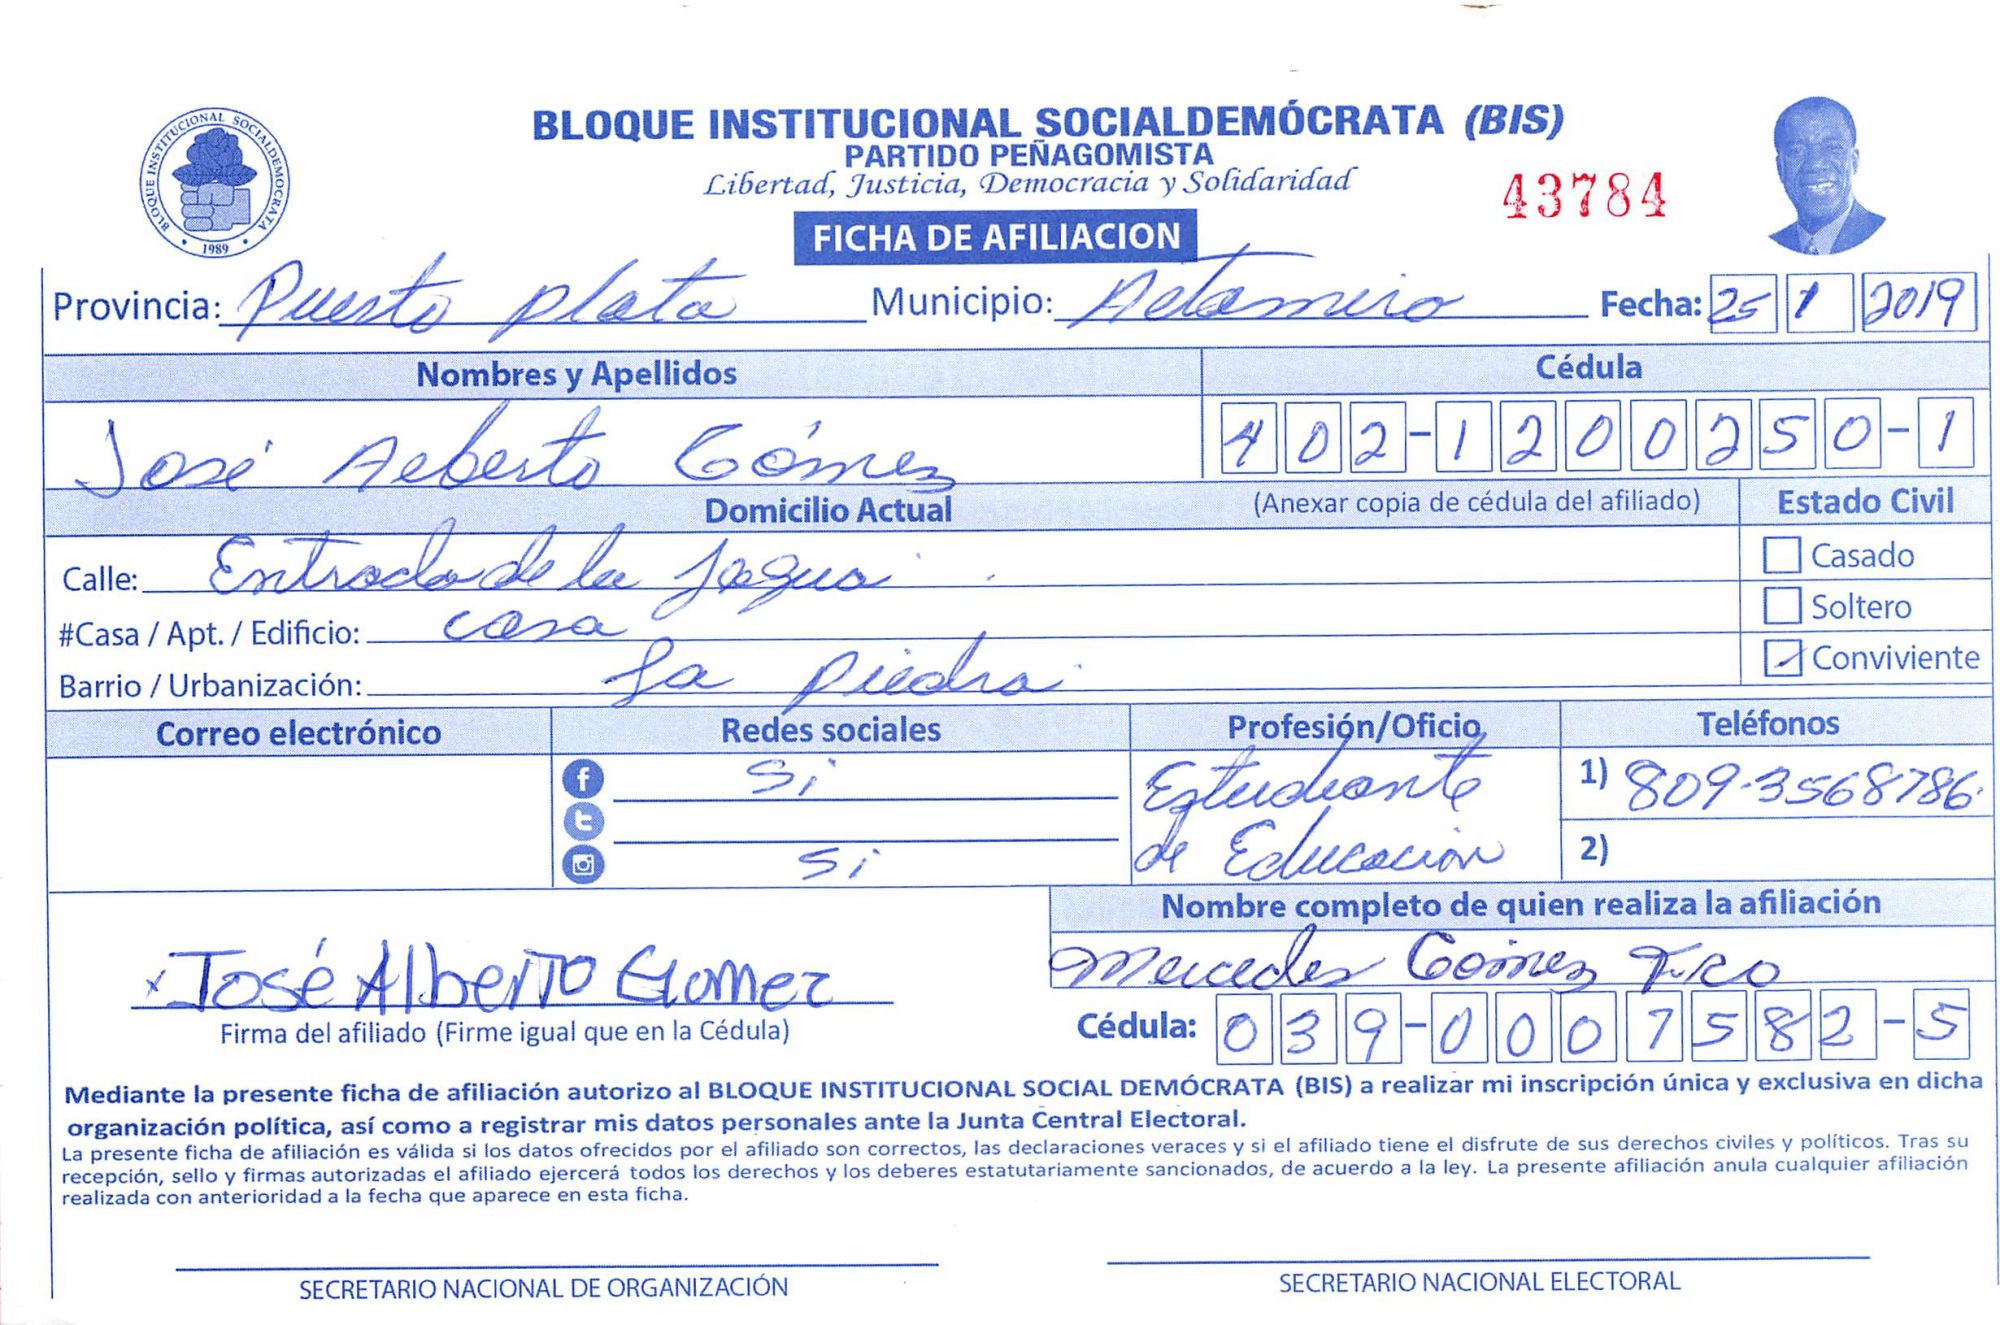 BLOQUE INSTITUCIONAL SOCIALDEMOCRATA
1989
BLOQUE INSTITUCIONAL SOCIALDEMÓCRATA (BIS)
PARTIDO PEÑAGOMISTA
Libertad, Justicia, Democracia y Solidaridad
43784
FICHA DE AFILIACION
Provincia: Puerto plata Municipio: Altamira Fecha: 25 1 2019
Nombres y Apellidos Cédula
José Alberto Gómez 402-1200250-1
Domicilio Actual (Anexar copia de cédula del afiliado) Estado Civil
Calle: Entrada de la Jagua Casado
#Casa / Apt. / Edificio: casa Soltero
Barrio / Urbanización: La piedra Conviviente
Correo electrónico Redes sociales Profesión/Oficio Teléfonos
Si Estudiante 1) 809-3568786
Si de Educación 2)
Nombre completo de quien realiza la afiliación
José Alberto Gomez Mercedes Gómez
Firma del afiliado (Firme igual que en la Cédula) Cédula: 039-0007582-5
Mediante la presente ficha de afiliación autorizo al BLOQUE INSTITUCIONAL SOCIAL DEMÓCRATA (BIS) a realizar mi inscripción única y exclusiva en dicha
organización política, así como a registrar mis datos personales ante la Junta Central Electoral.
La presente ficha de afiliación es válida si los datos ofrecidos por el afiliado son correctos, las declaraciones veraces y si el afiliado tiene el disfrute de sus derechos civiles y políticos. Tras su
recepción, sello y firmas autorizadas el afiliado ejercerá todos los derechos y los deberes estatutariamente sancionados, de acuerdo a la ley. La presente afiliación anula cualquier afiliación
realizada con anterioridad a la fecha que aparece en esta ficha.
SECRETARIO NACIONAL DE ORGANIZACIÓN SECRETARIO NACIONAL ELECTORAL